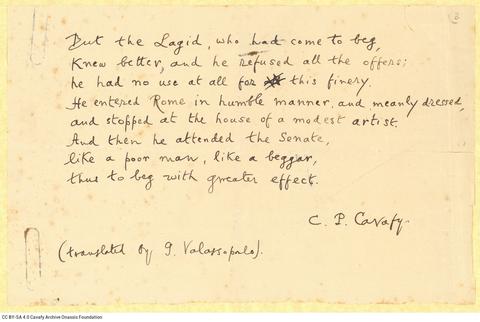 But the Lagid, who had come to beg,
Knew better, and he refused all the offers;
he had no use at all for this finery.
He entered Rome in humble manner, and meanly dressed,
and stopped at the house of a modest artist.
And then he attended the Senate,
like a poor man, like a beggar,
thus to beg with greater effect.
C. P. Cavafy.
(translated by G. Valassopoulo).
CC BY-SA 4.0 Cavafy Archive Onassis Foundation